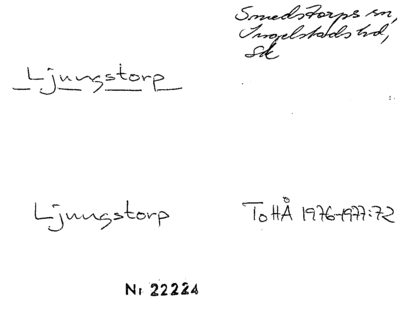 Smedstorps sn,
Ingelstads hd,
Sk
Ljungstorp
Ljungstorp
ToHÅ 1976-1977:72
Nr 22224